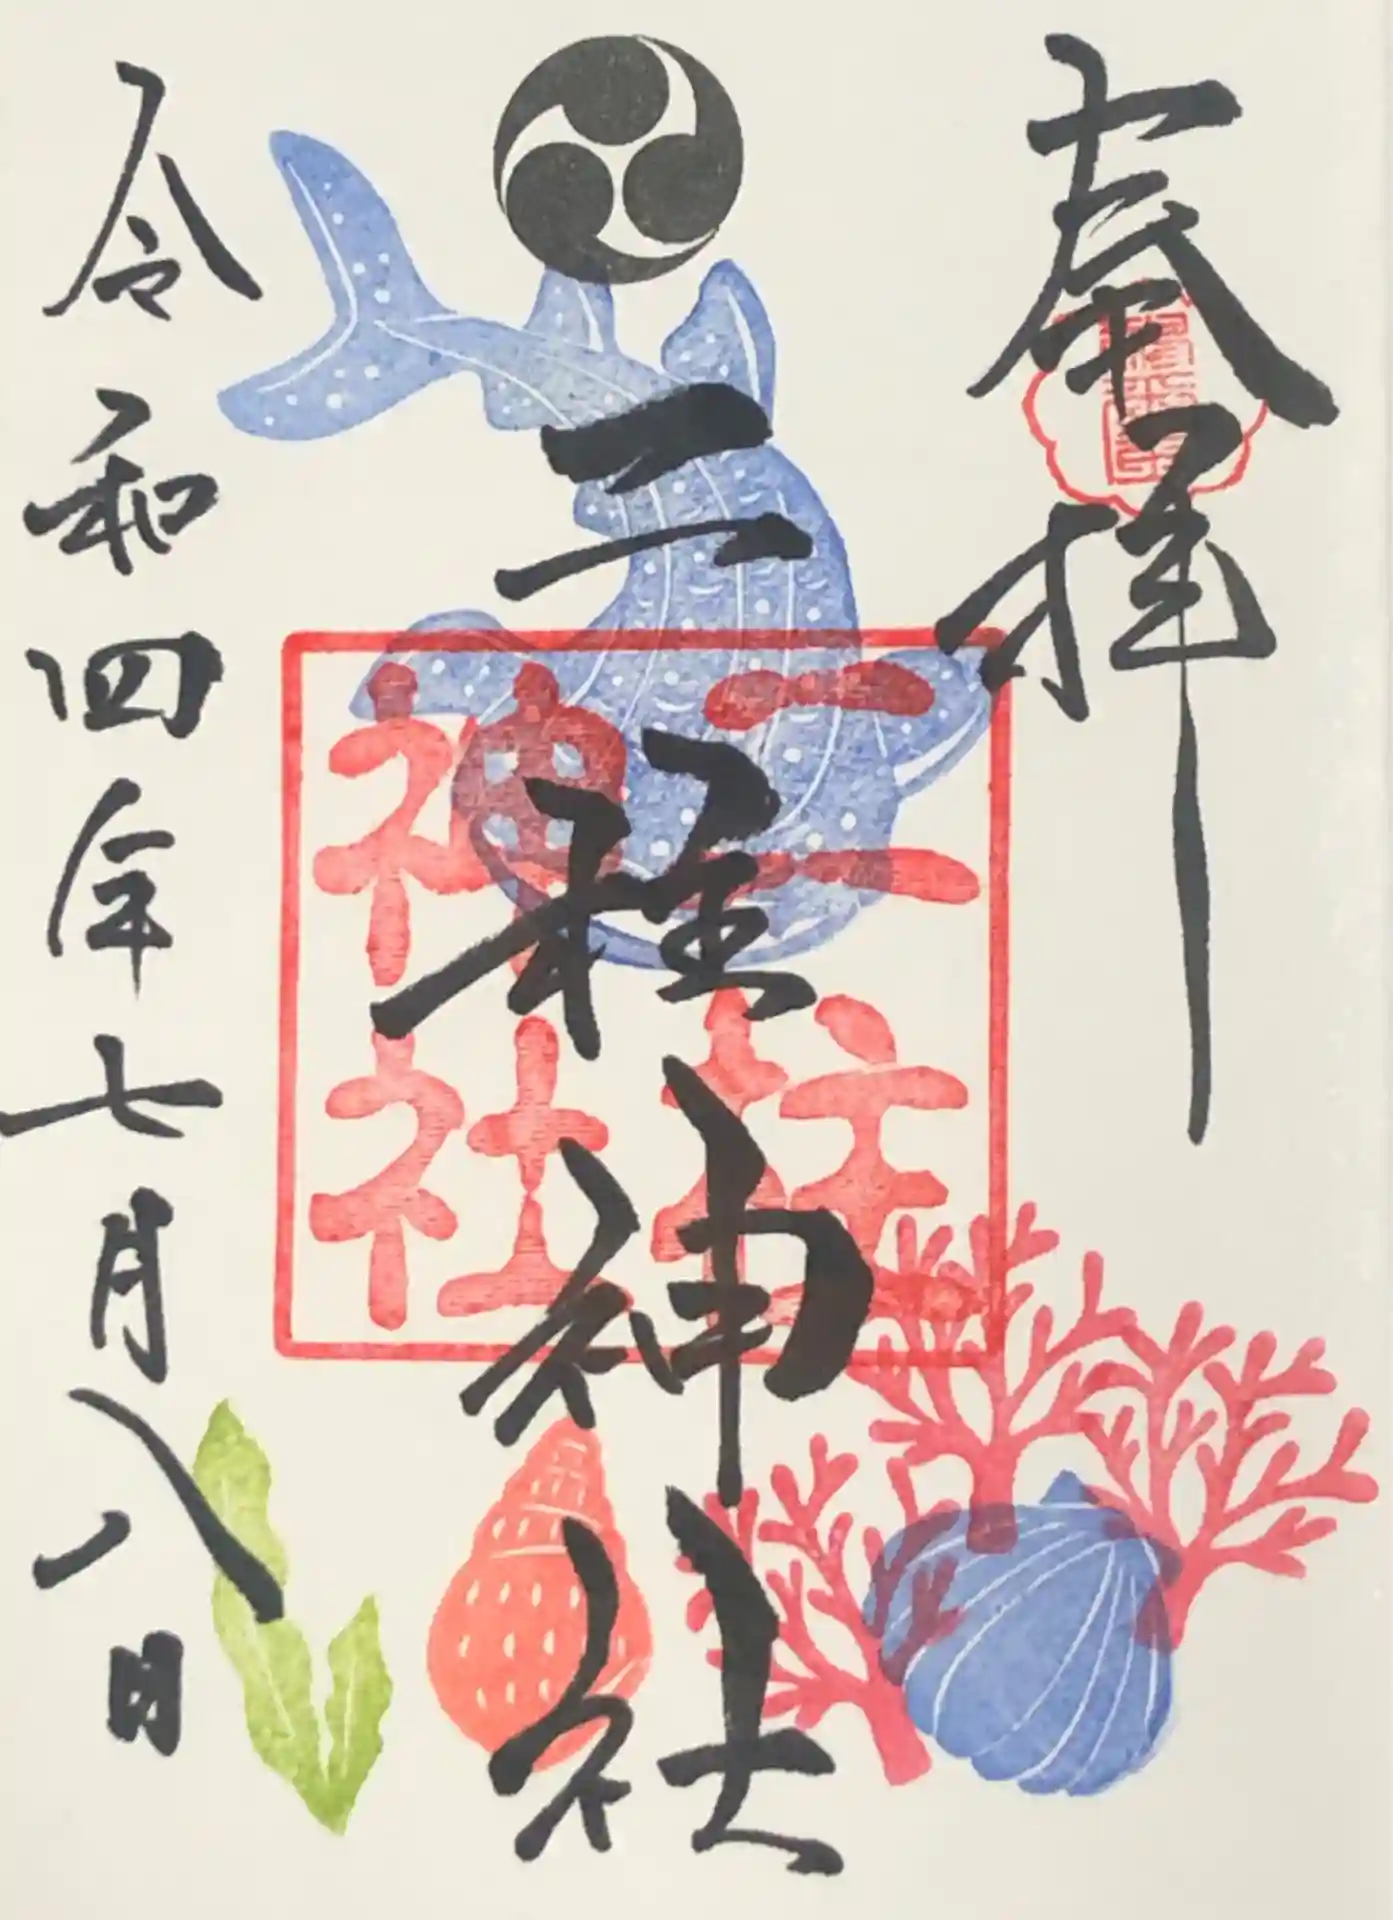 奉拝
二柱神社
二柱
神社
令和四年七月八日